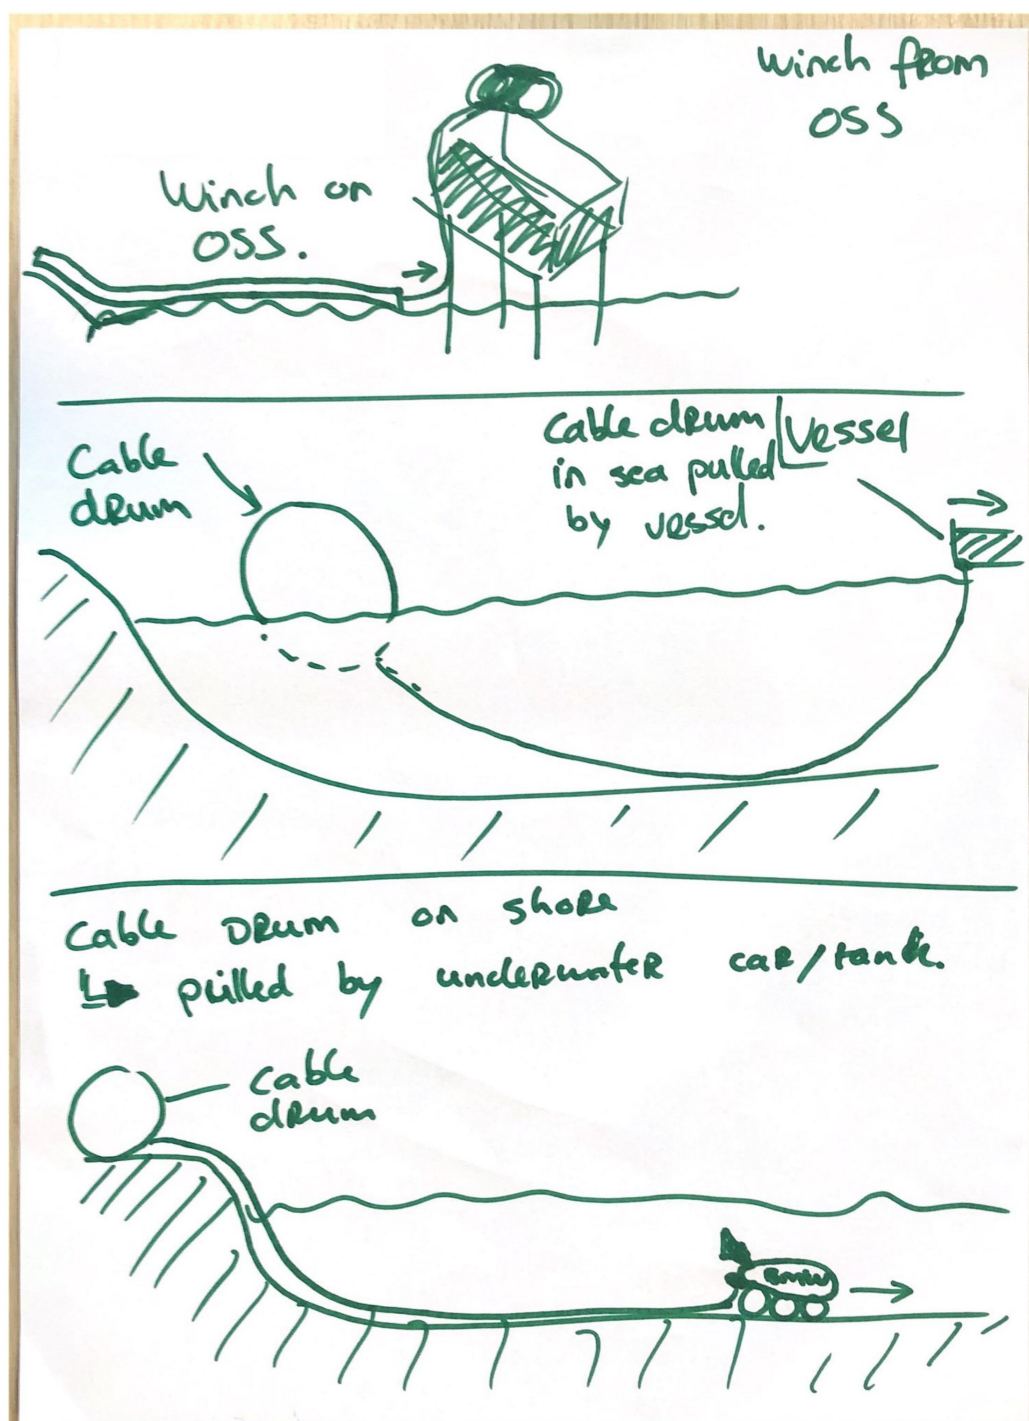 Winch from
OSS
Winch on
OSS.
Cable
drum
Cable drum
in sea pulled
by vessel.
Vessel
Cable Drum on shore
↳ pulled by underwater car/tank.
Cable
drum
BMW